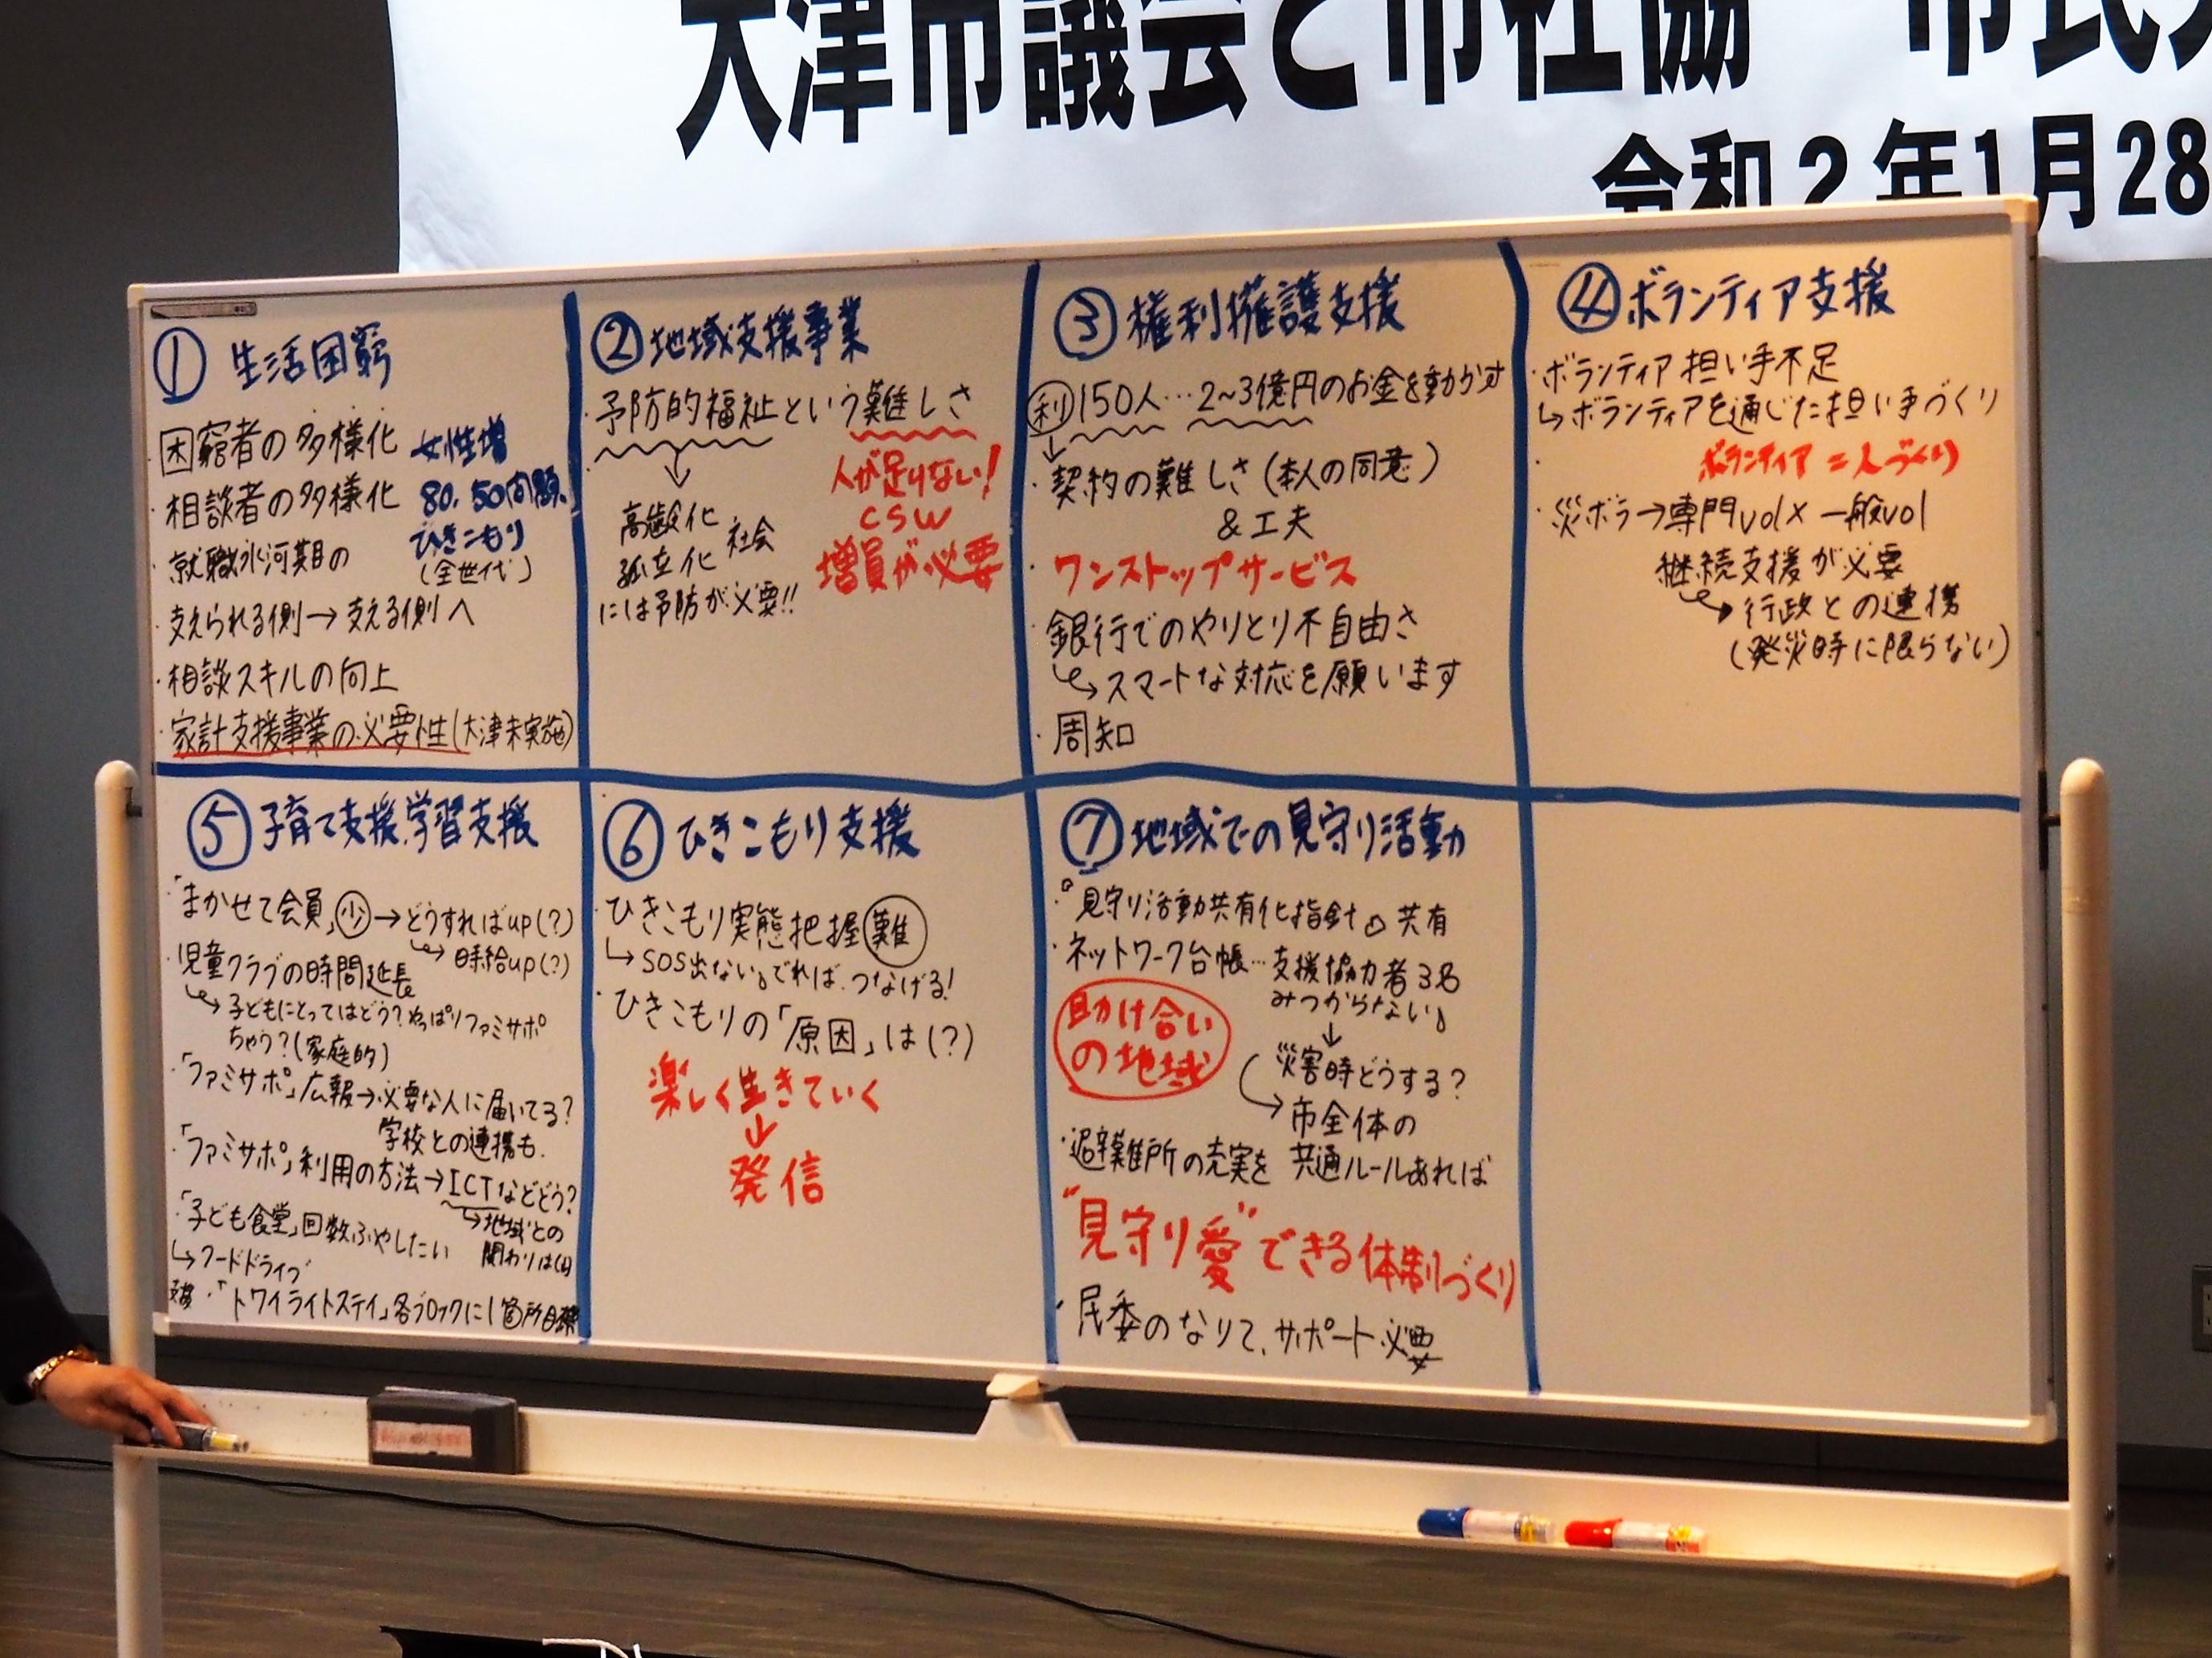 大津市議会と市社協 市民
令和2年1月28
① 生活困窮
・困窮者の多様化 女性増
・相談者の多様化 80.50問題
・就職氷河期の ひきこもり
(全世代)
・支えられる側→支える側へ
・相談スキルの向上
・家計支援事業の必要性(大津未実施)
② 地域支援事業
・予防的福祉という難しさ
↓
高齢化
孤立化 社会
には予防が必要!!
人が足りない!
CSW
増員が必要
③ 権利擁護支援
利 150人…2~3億円のお金を動かす
↓
・契約の難しさ(本人の同意)
&工夫
・ワンストップサービス
・銀行でのやりとり不自由さ
↪スマートな対応を願います
・周知
④ ボランティア支援
・ボランティア担い手不足
↳ボランティアを通じた担い手づくり
ボランティア=人づくり
・災ボラ→専門vol×一般vol
継続支援が必要
↪行政との連携
(発災時に限らない)
⑤ 子育て支援.学習支援
・「まかせて会員」少→どうすればup(?)
↪時給up(?)
・児童クラブの時間延長
↪子どもにとってはどう?やっぱりファミサポ
ちゃう?(家庭的)
・「ファミサポ」広報→必要な人に届いてる?
学校との連携も.
・「ファミサポ」利用の方法→ICTなどどう?
↪地域との
関わりは
・「子ども食堂」回数ふやしたい
↳フードドライブ
支援 ・「トワイライトステイ」各ブロックに1箇所目標
⑥ ひきこもり支援
・ひきこもり実態把握難
↳SOS出ない。でれば、つなげる!
・ひきこもりの「原因」は(?)
楽しく生きていく
↓
発信
⑦ 地域での見守り活動
・『見守り活動共有化指針』の共有
・ネットワーク台帳…支援協力者3名
みつからない。
↓
災害時どうする?
↪市全体の
共通ルールあれば
助け合い
の地域
・避難所の充実を
"見守り愛"できる体制づくり
・民委のなりて、サポート必要